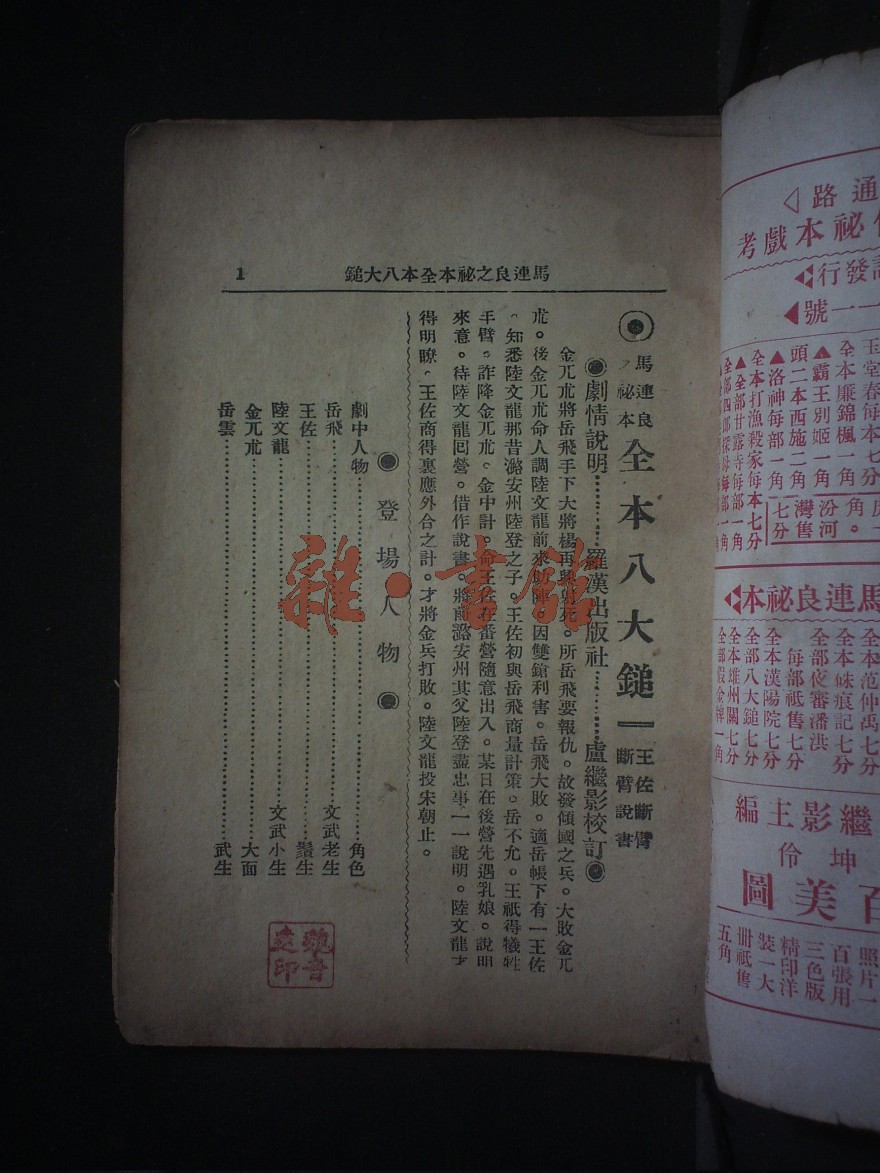 馬連良之祕本全本八大鎚
1
馬連良
祕本
全本八大鎚
王佐斷臂
斷臂說書
劇情說明
羅漢出版社
盧繼影校訂
金兀朮將岳飛手下大將楊再興射死。所岳飛要報仇。故發傾國之兵。大敗金兀
朮。後金兀朮命人調陸文龍前來助陣。因雙鎗利害。岳飛大敗。適岳帳下有一王佐
。知悉陸文龍那昔潞安州陸登之子。王佐初與岳飛商量計策。岳不允。王祇得犧牲
手臂。詐降金兀朮。金中計。命王佐在番營隨意出入。某日在後營先遇乳娘。說明
來意。待陸文龍回營。借作說書。將前潞安州其父陸登盡忠事一一說明。陸文龍才
得明瞭。王佐商得裏應外合之計。才將金兵打敗。陸文龍投宋朝止。
登場人物
劇中人物 角色
岳飛 文武老生
王佐 鬚生
陸文龍 文武小生
金兀朮 大面
岳雲 武生
雜·書館
通路
祕本戲考
發行
一一號
玉堂春每本七分
全本廉錦楓一角
霸王別姬一角
頭二本西施二角
洛神每部一角
全本打漁殺家每本七分
全部甘露寺每部一角
全部四郎探母每部一角
汾河
灣售
七分
馬連良祕本
全本范仲禹七分
全本硃痕記七分
全部夜審潘洪
每部祇售七分
全部八大鎚七分
全本漢陽院七分
全本雄州關七分
全部假金牌一角
繼影主編
坤伶
百美圖
照片一
百張用
三色版
精印洋
裝一大
冊祇售
五角